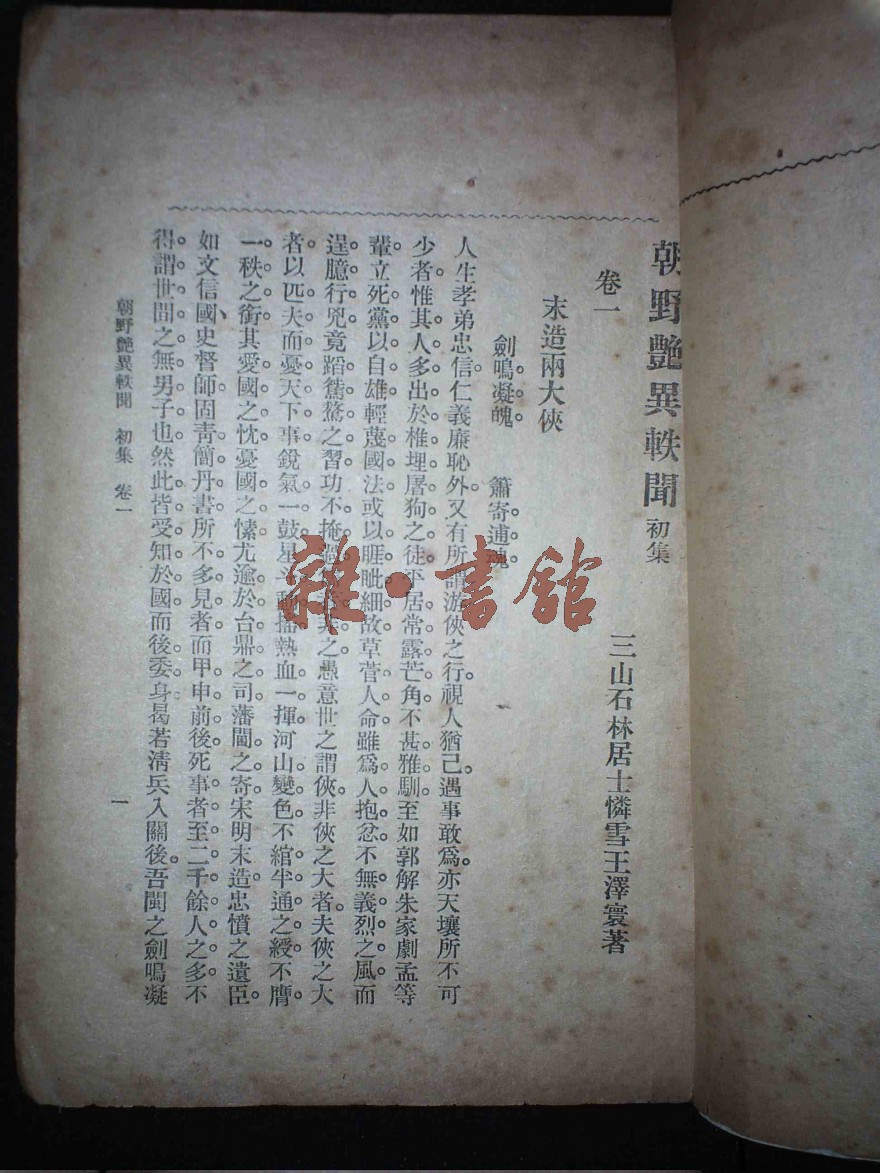 朝野艷異軼聞 初集
三山石林居士憐雪王澤寰著
卷一
末造兩大俠
劍鳴凝醜 簫寄逋
人生孝弟忠信仁義廉恥外又有所謂游俠之行視人猶己遇事敢爲亦天壤所不可
少者惟其人多出於椎埋屠狗之徒平居常露芒角不甚雅馴至如郭解朱家劇孟等
輩立死黨以自雄輕蔑國法或以睚眦細故草菅人命雖爲人抱忿不無義烈之風而
逞臆行兇竟蹈鴟鶩之習功不掩非之愚意世之謂俠非俠之大者夫俠之大
者以匹夫而憂天下事銳氣一鼓星斗動搖熱血一揮河山變色不綰半通之綬不膺
一秩之銜其愛國之忱憂國之愫尤逾於台鼎之司藩閫之寄宋明末造忠憤之遺臣
如文信國史督師固靑簡丹書所不多見者而甲申前後死事者至二千餘人之多不
得謂世間之無男子也然此皆受知於國而後委身曷若淸兵入關後吾閩之劍鳴凝
朝野艷異軼聞 初集 卷一
一
雜·書館